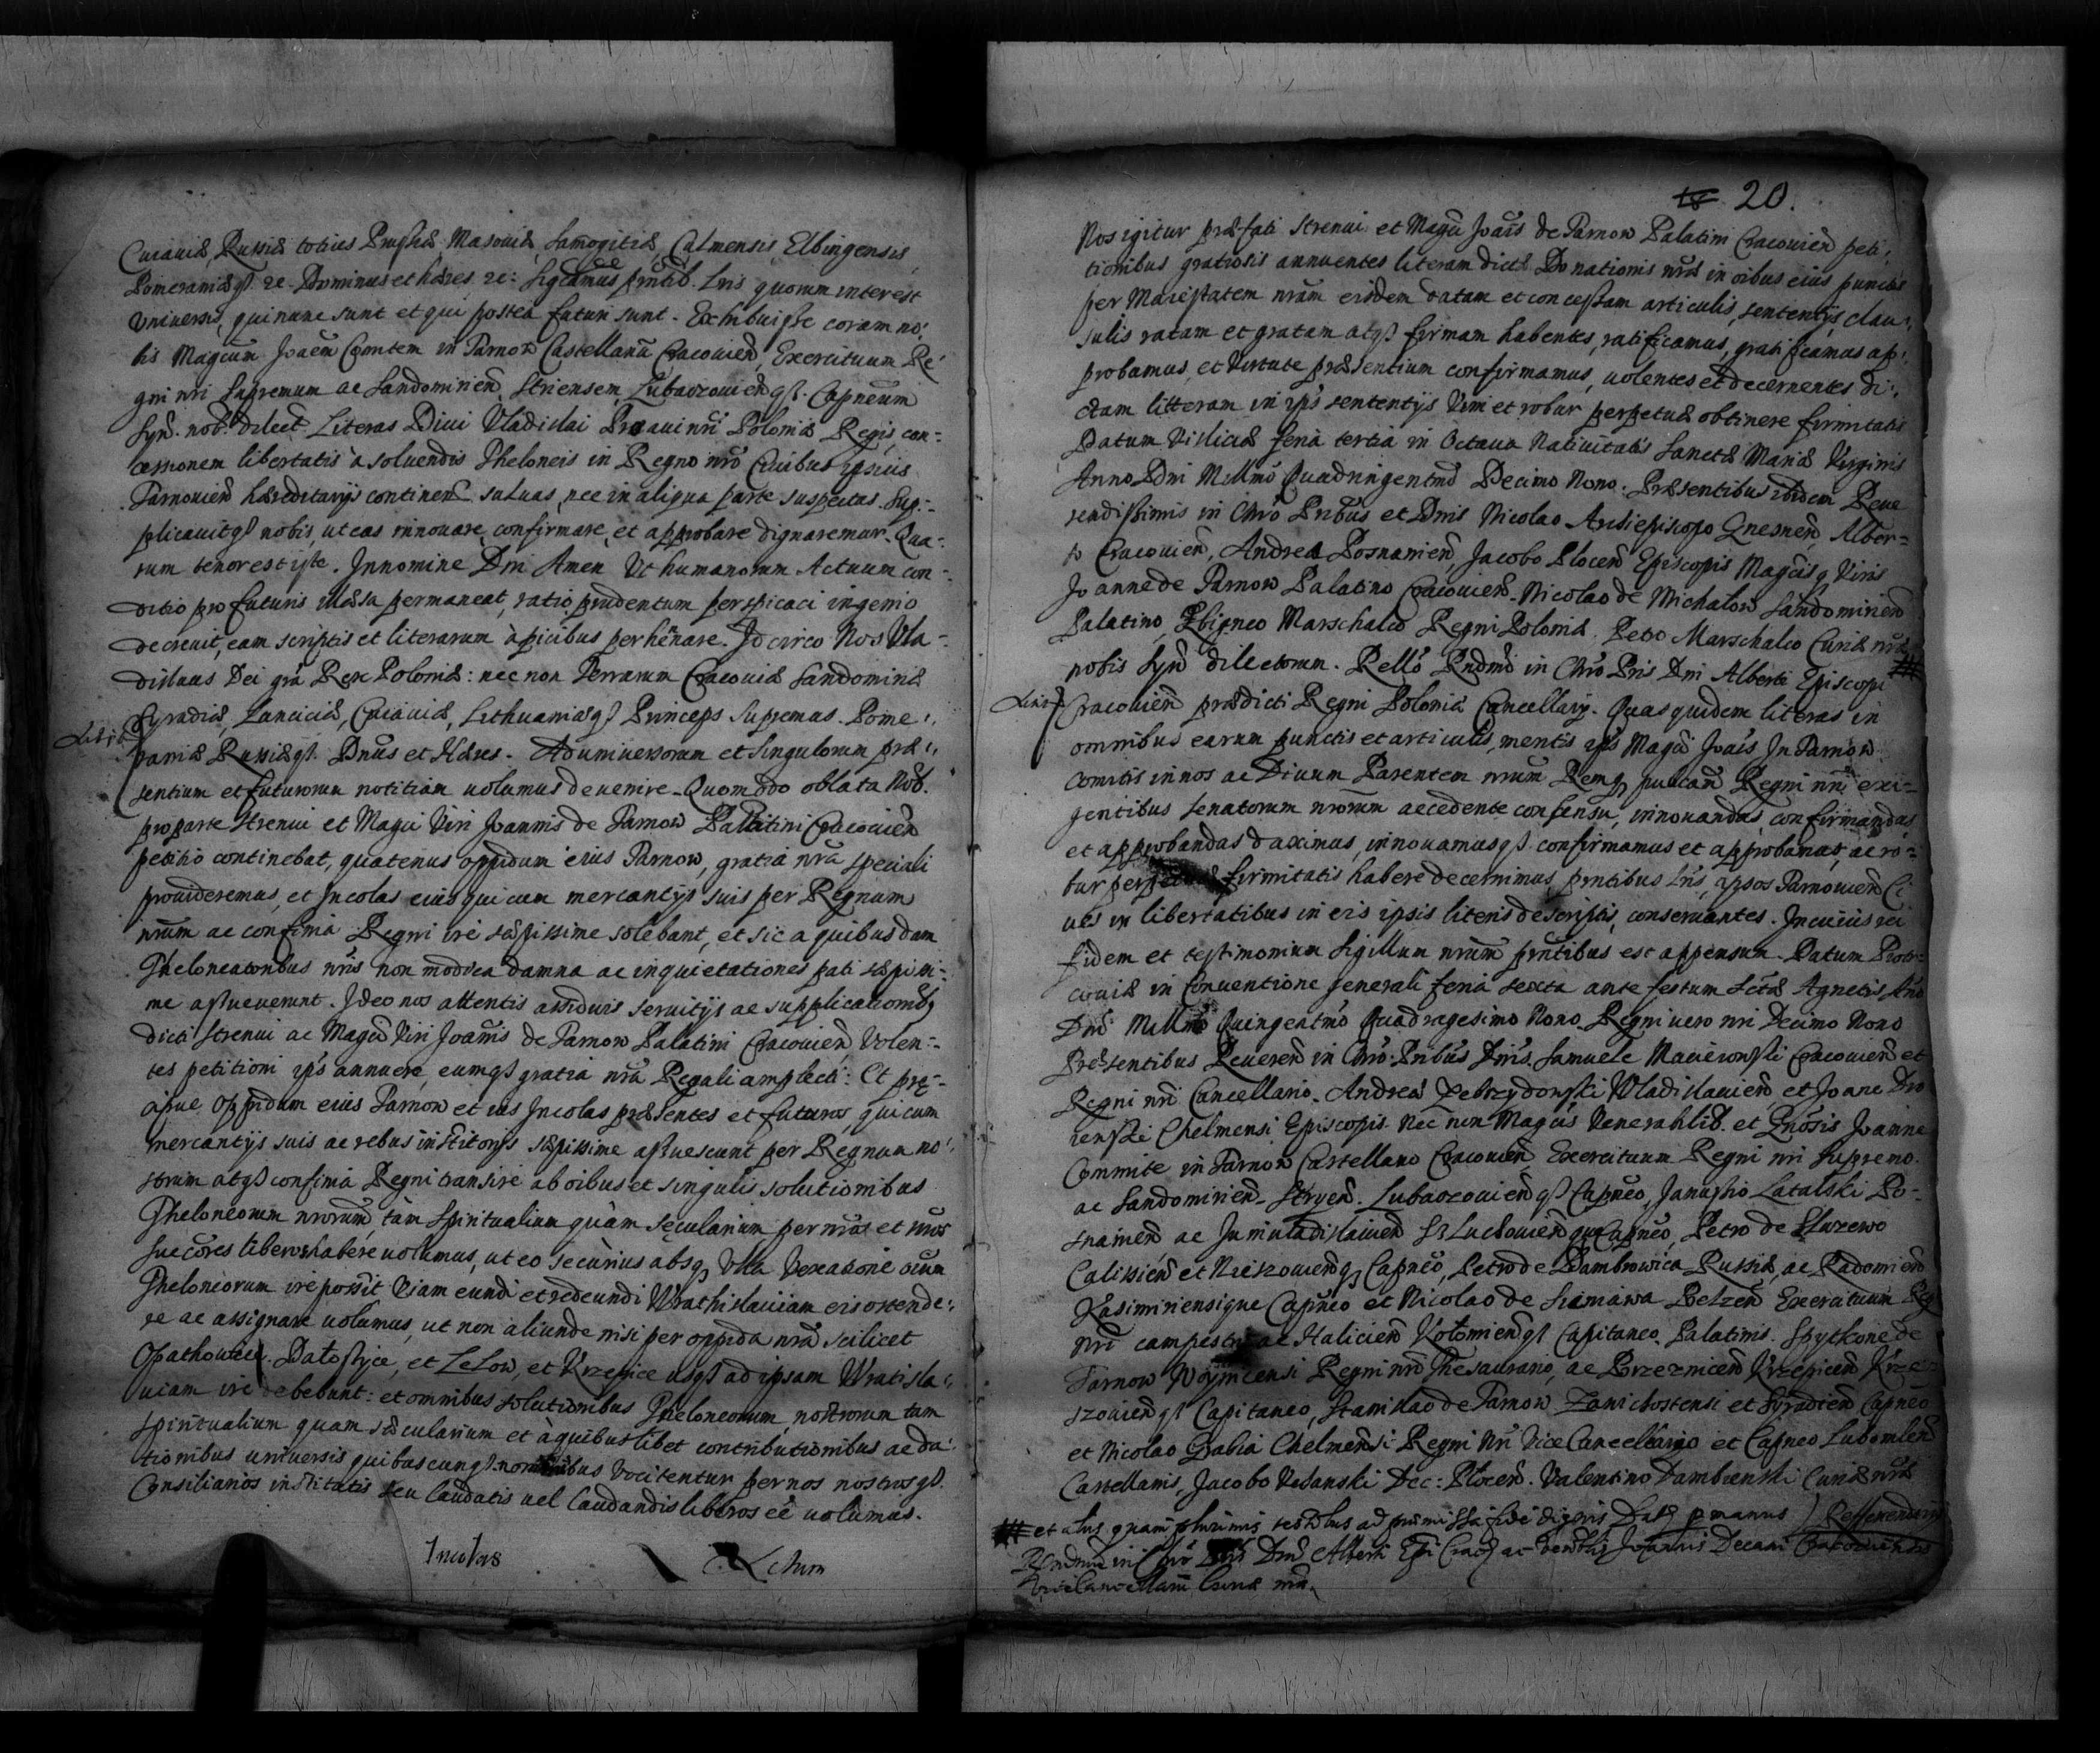 Cuiaviæ, Russiæ totius Prussiæ Masoviæ, Samogitiæ, Culmensis, Elbingensis,
Pomeraniæqȝ. Dominus et hæres. Significamus prntib. Lris quorum interest
Universis, qui nunc sunt et qui postea futuri sunt. Exhibuisse coram no:
bis Magcum Joaem Comitem in Tarnow Castellanu Cracovien, Exercituum Re:
gni nri Supremum ac Sandomirien, Striensem, Lubaczovienqȝ. Capneum
Syn. nob. dilect. Literas Divi Vladislai Proavi nri Poloniæ Regis, con:
cessionem libertatis à solvendis Theloneis in Regno nro Civibus ipsius
Tarnovien hæreditarijs continen. salvas, nec in aliqua parte suspectas. Sup:
plicavitqȝ nobis, ut eas innovare, confirmare, et approbare dignaremur. Qua:
rum tenor est iste. In nomine Dni Amen Ut humanorum Actuum con:
ditio pro futuris illæsa permaneat, ratio prudentum perspicaci ingenio
decrevit, eam scriptis et literarum àpicibus perhennare. Idcirco Nos Vla:
dislaus Dei gra Rex Poloniæ: nec non Terrarum Cracoviæ Sandomiriæ
Syradiæ, Lanciciæ, Cuiaviæ, Lithuaniæqȝ Princeps Supremus. Pome:
raniæ Russiæqȝ. Dnus et Hæres. Ad universorum et singulorum præ:
sentium et futurorum notitiam volumus devenire. Quomodo oblata Nob.
pro parte strenui et Magci Viri Joannis de Tarnow Pallatini Cracovien
petitio continebat, quatenus oppidum eius Tarnow, gratia nra speciali
provideremus, et Incolas eius qui cum mercantijs suis per Regnum
nrum ac confinia Regni ire sæpissime solebant, et sic a quibusdam
Theloneatoribus nris non modica damna ac inquietationes pati sæpissi:
me assueverunt. Ideo nos attentis assiduis servitijs ac supplicationibȝ
dicti strenui ac Magci Viri Joannis de Tarnow Palatini Cracovien, Volen:
tes petitioni ips annuere, eumqȝ gratia nra Regali amplecti: Et præ:
cipue Oppidum eius Tarnow et eius Incolas præsentes et futuros, qui cum
mercantijs suis ac rebus institorijs sæpissime assuescunt per Regnum no:
strum atqȝ confinia Regni transire ab oibus et singulis solutionibus
Theloneorum nrorum, tàm Spiritualium quàm sęcularium per nros et nros
succores liberos habere volumus, ut eo securius absqȝ ulla Vexatione oium
Theloneorum ire possit Viam eundi et redeundi Wrathislaviam eis ostende:
re ac assignare volumus, ut non aliunde nisi per oppida nra scilicet
Opathowiec, et Lelow, et Krzepice usqȝ ad ipsam Wratisla:
viam ire debebunt: et omnibus solutionibus Theloneorum nostrorum tam
spiritualium quam sæcularium et à quibuslibet contributionibus ac da:
tionibus universis quibuscunqȝ nominibus vocitentur per nos nostrosqȝ.
Consiliarios institutis seu laudatis vel laudandis liberos eē volumus.
Incolas
20.
Nos igitur præfati Strenui et Magci Joais de Tarnow Palatini Cracovien peti:
tionibus gratiosis annuentes literam dictæ Donationis nræ in oibus eius punctis
per Maiestatem nram eisdem datam et concessam articulis, sententijs clau:
sulis ratam et gratam atqȝ firmam habentes, ratificamus, gratificamus ap:
probamus, et Virtute præsentium confirmamus, volentes et decernentes di:
ctam litteram in ips sententijs Vim et robur perpetuæ obtinere firmitatis
Datum Visliciæ feria tertia in Octava Nativitatis Sanctæ Mariæ Virginis
Anno Dni Millmo Quadringentmo Decimo Nono. Præsentibus ibidem Reve
rendissimis in Chro Pribus et Dnis Nicolao Archiepiscopo Gnesnen, Alber:
to Cracovien, Andrea Posnanien, Jacobo Plocen Episcopis Magcisqȝ Viris
Joanne de Tarnow Palatino Cracovien. Nicolao de Michalow Sandomirien
Palatino, Zbigneo Marschalco Regni Poloniæ. Petro Marschalco Curiæ nræ
nobis Syn dilectorum. Rello Rndmi in Chro Pris Dni Alberti Episcopi
Cracovien prædicti Regni Poloniæ Cancellarij. Quas quidem literas in
omnibus earum punctis et articulis, mentis ips Magci Joais In Tarnow
Comitis in nos ac Divum Parentem nrum Remqȝ publcam Regni nri exi:
gentibus Senatorum nrorum accedente consensu, innovandas, confirmandas,
et approbandas daximus, innovamusqȝ confirmamus et approbamus, ac ro:
bur firmitatis habere decernimus prntibus Lris, ipsos Tarnovien Ci
ves in libertatibus in eis ipsis literis descriptis, conservantes. In cuius rei
fidem et testimonium Sigillum nrum prntibus est appensum. Datum Piotr:
coviæ in Conventione generali feria sexta ante festum Sctæ Agnetis Ano
Dni Millmo Quingentmo Quadragesimo Nono Regni vero nri Decimo Nono
Præsentibus Reveren in Chro Pribus Dnis. Samuele Maciewoysky Cracovien et
Regni nri Cancellario. Andrea Zebrzydowsky Wladislavien et Joane Dro
ievsky Chelmensi Episcopis. Nec non Magcis Venerablib. et Gnosis Joanne
Commite in Tarnow Castellano Cracovien, Exercituum Regni nri Supremo.
ac Sandomirien. Stryen. Lubaczovienqȝ Capneo, Janussio Latalski Po:
snanien ac Juniuladislavien Sluchovienqȝ Capneo, Petro de Sluzewo
Calissien et Mieszovienqȝ Capneo, Petro de Dambrowica Russiæ, ac Radomien
Kasimiriensique Capneo et Nicolao de Sieniawa Belzen Exercituum Reg
nri campestri ac Halicien Kolomienqȝ Capitaneo, Palatinis. Spytkone de
Tarnow Woynicensi Regni nri Thesaurario, ac Brzeznicen Krzepicen Krze:
szovienqȝ Capitaneo, Stanislao de Tarnow Zawichostensi et Syradien Capneo
et Nicolao Grabia Chelmensi Regni Nri Vice Cancellario et Capneo Lubomlen
Castellanis, Jacobo Uchanski Dec: Plocen. Valentino Dambienski Curiæ nræ
et alijs quam plurimis testibus ad præmissa fide dignis Datȝ p manus ) Refferendarijs
Rendmi in Chro Pris Dni Alberti Epi Cracȝ ac Venblis Joannis Decani Cracoviensis
Vicecancellarii Curiæ nræ.